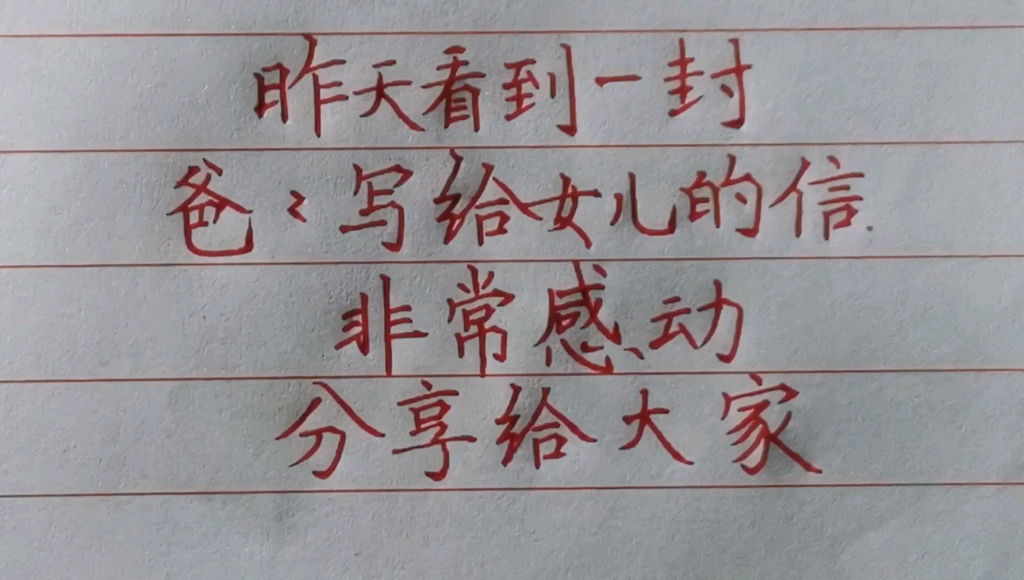 昨天看到一封
爸〻写给女儿的信.
非常感动
分享给大家